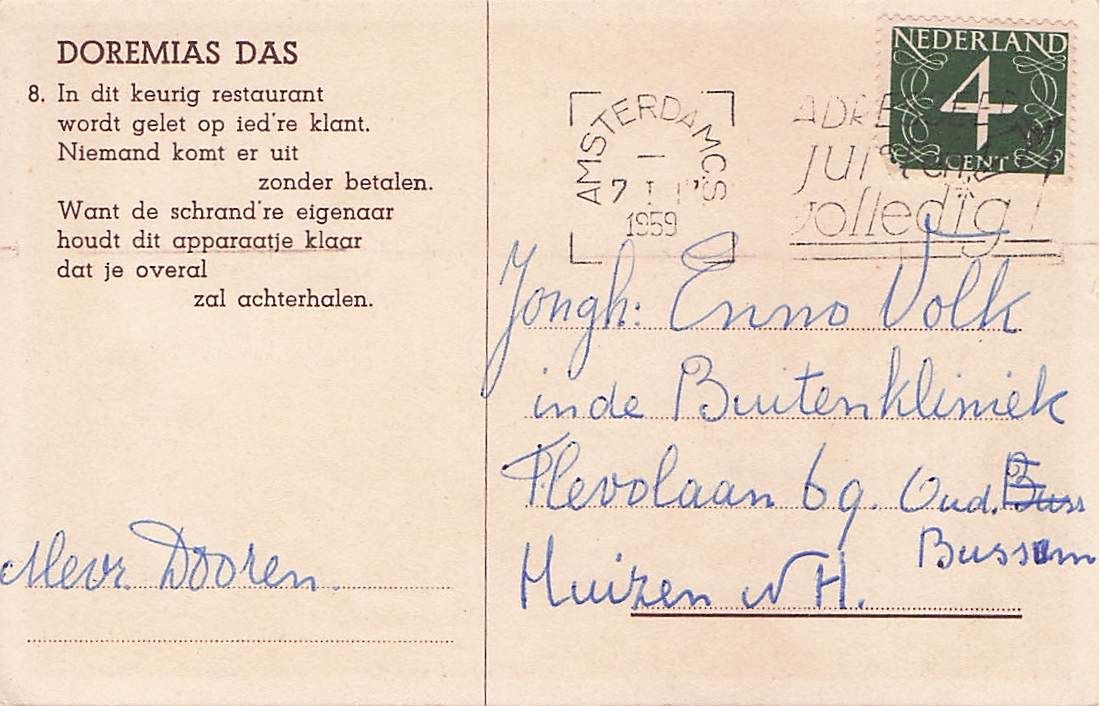 DOREMIAS DAS
8. In dit keurig restaurant
wordt gelet op ied're klant.
Niemand komt er uit
zonder betalen.
Want de schrand're eigenaar
houdt dit apparaatje klaar
dat je overal
zal achterhalen.
Mevr. Dooren.
NEDERLAND
4
CENT
AMSTERDAM CS
1959
volledig!
Jongh: Enno Volk
in de Buitenkliniek
Flevolaan 69. Oud. Buss
Bussum
Huizen NH.